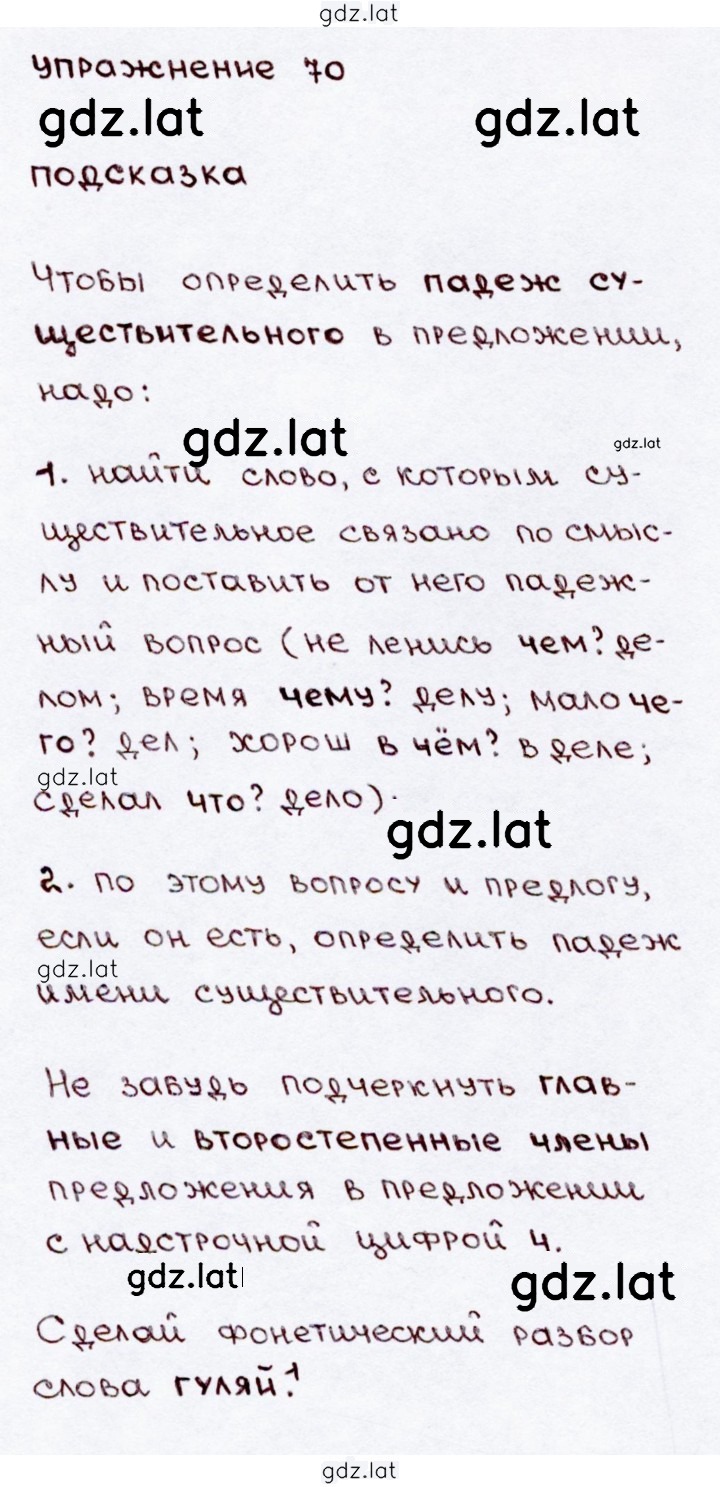 gdz.lat
упражнение 70
gdz.lat gdz.lat
подсказка
Чтобы определить падеж су-
ществительного в предложении,
надо:
gdz.lat gdz.lat
1. найти слово, с которым су-
ществительное связано по смыс-
лу и поставить от него падеж-
ный вопрос (не ленись чем? де-
лом; время чему? делу; мало че-
го? дел; хорош в чём? в деле;
gdz.lat
сделал что? дело).
gdz.lat
2. по этому вопросу и предлогу,
если он есть, определить падеж
gdz.lat
имени существительного.
Не забудь подчеркнуть глав-
ные и второстепенные члены
предложения в предложении
с надстрочной цифрой 4.
gdz.lat gdz.lat
Сделай фонетический разбор
слова гуляй.¹
gdz.lat